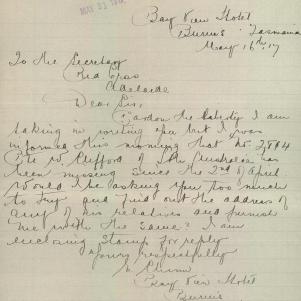 MAY 21 1917
Bay View Hotel
Burnie Tasmania
May 16th 17
To the Secretary
Red Cross
Adelaide
Dear Sir,
Pardon the liberty I am
taking in writing you but I was
informed this morning that No 2804
Pte W Clifford of Sth Australia has
been missing since the 2nd of April
Would I be asking you too much
to try and find out the address of
any of his relatives and furnish
me with the same? I am
enclosing stamp for reply
Yours respectfully
Bay View Hotel
Burnie